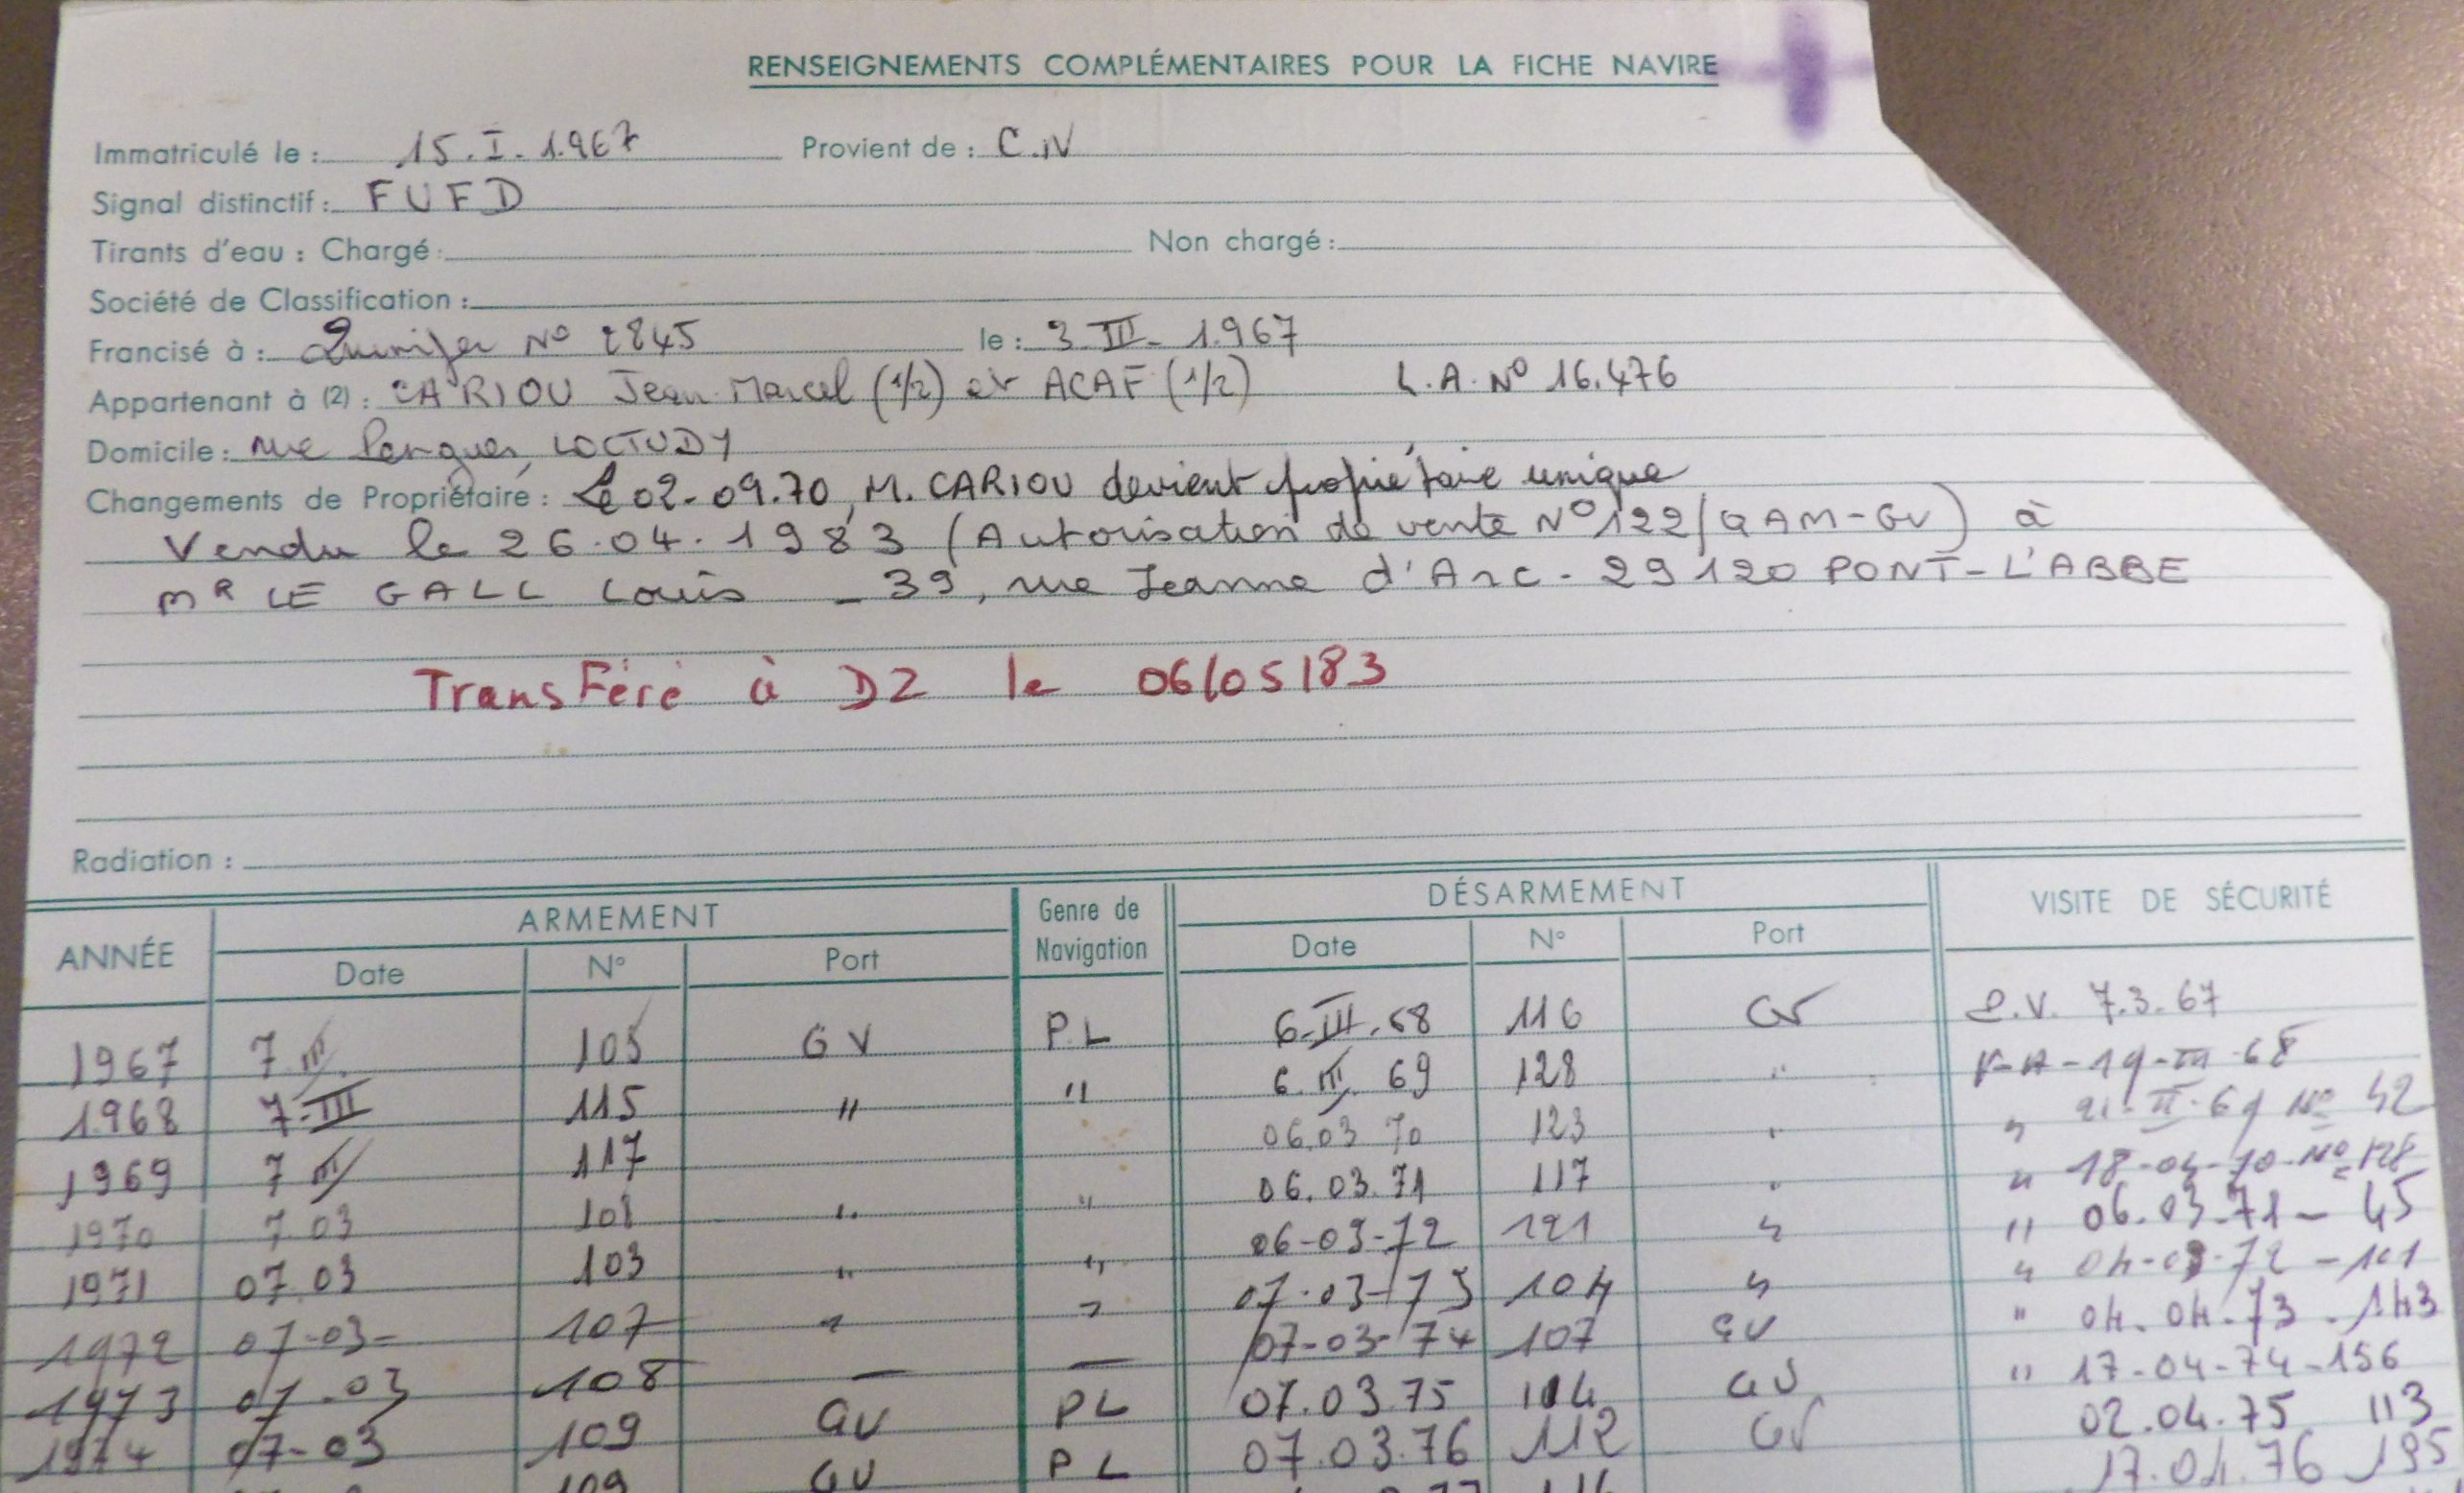 RENSEIGNEMENTS COMPLÉMENTAIRES POUR LA FICHE NAVIRE
Immatriculé le : 15.I.1.967 Provient de : C.iV
Signal distinctif : FUFD
Tirants d'eau : Chargé : Non chargé :
Société de Classification :
Francisé à : Quimper No 2845 le : 3.III-1.967
Appartenant à (2) : CARIOU Jean-Marcel (1/2) et ACAF (1/2) L.A. No 16.476
Domicile : rue LOCTUDY
Changements de Propriétaire : Le 02-09.70, M. CARIOU devient propriétaire unique
Vendu le 26.04.1983 (Autorisation de vente No 122/QAM-GV) à
MR LE GALL Louis - 39, rue Jeanne d'Arc - 29120 PONT-L'ABBE
TransFéré à DZ le 06/05/83
Radiation :
ANNÉE ARMEMENT Genre de Navigation DÉSARMEMENT VISITE DE SÉCURITÉ
Date No Port Date No Port
1967 7 III. 105 GV P.L 6-III.68 116 GV P.V. 7.3.67
1968 7-III 115 " " 6.III. 69 128 " V-A-19-III-68
1969 7 III 117 06.03 70 123 " " II-69 No 42
1970 7.03 101 " " 06.03.71 117 " " 18-04-70-No 128
1971 07.03 103 " " 06-03-72 121 " " 06.03-71- 45
1972 07-03- 107 " " 07.03-73 104 " " 04-03-72-101
1973 07-03 108 — — 07-03-74 107 GV " 04.04.73.143
1974 07-03 109 GV PL 07.03.75 104 GV " 17-04-74-156
109 GV PL 07.03.76 112 GV 02.04.75 113
17.04.76 195